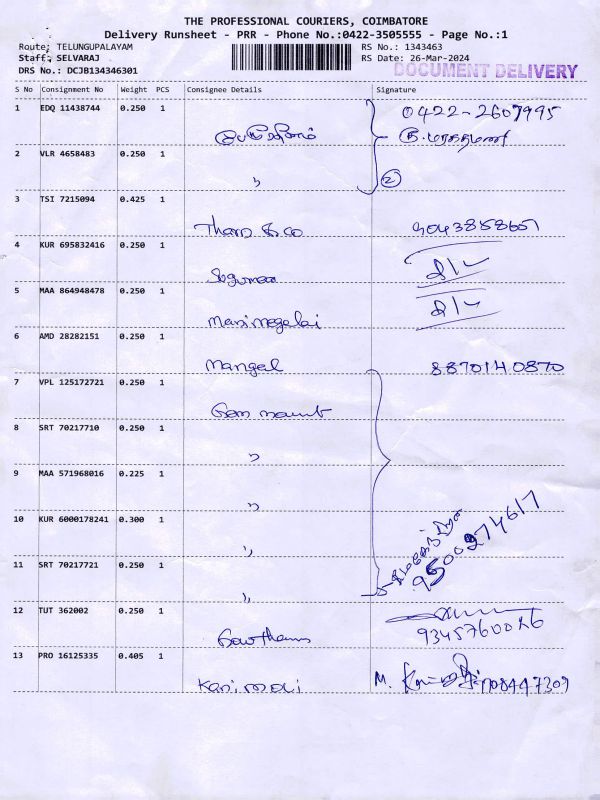 THE PROFESSIONAL COURIERS, COIMBATORE
Delivery Runsheet - PRR - Phone No.:0422-3505555 - Page No.:1
Route: TELUNGUPALAYAM RS No.: 1343463
Staff: SELVARAJ RS Date: 26-Mar-2024
DRS No.: DCJB134346301 DOCUMENT DELIVERY
S No Consignment No Weight PCS Consignee Details Signature
1 EDQ 11438744 0.250 1 0422-2607995
2 VLR 4658483 0.250 1
" 2
3 TSI 7215094 0.425 1
4 KUR 695832416 0.250 1
Suguna
5 MAA 864948478 0.250 1
Manimegalai
6 AMD 28282151 0.250 1
Mangal 8870140870
7 VPL 125172721 0.250 1
8 SRT 70217710 0.250 1
"
9 MAA 571968016 0.225 1
"
10 KUR 6000178241 0.300 1
" 9500274617
11 SRT 70217721 0.250 1
"
12 TUT 362002 0.250 1
Gowtham 9345760026
13 PRO 16125335 0.405 1
Kanimoli M.